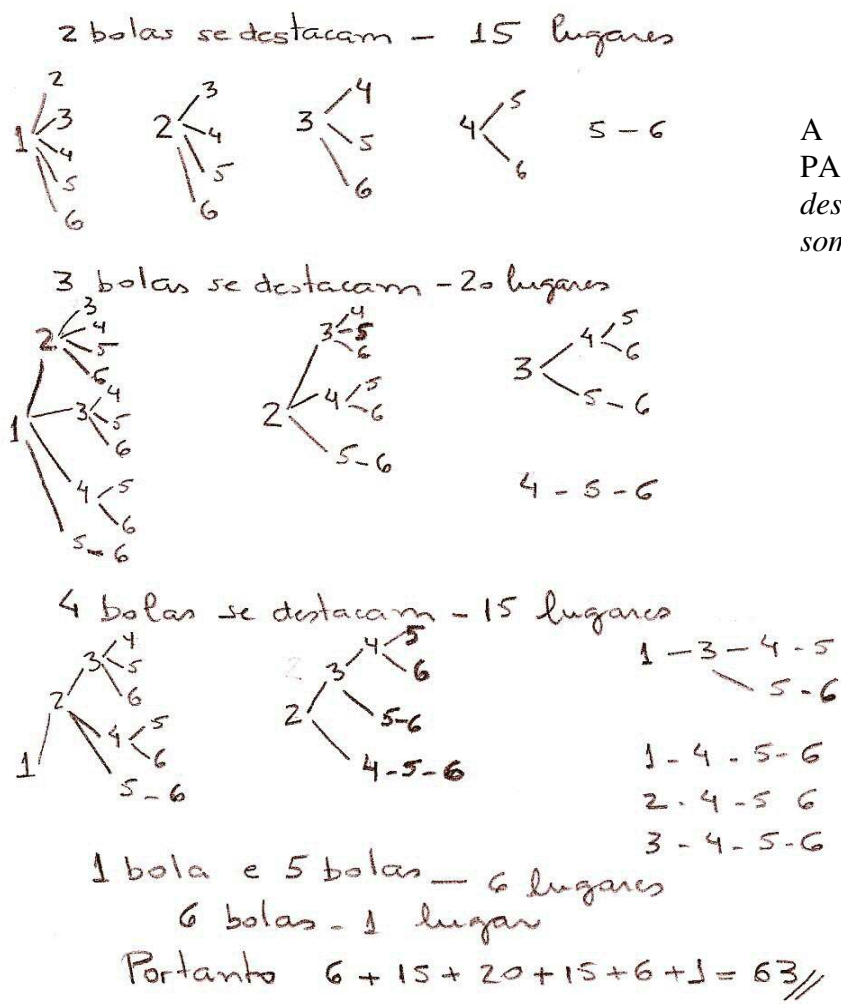 2 bolas se destacam - 15 lugares
1 2 3 4 5 6
2 3 4 5 6
3 4 5 6
4 5 6
5 - 6
A
PA
des
som
3 bolas se destacam - 20 lugares
1
2 3 4 5 6
3 4 5 6
4 5 6
5 - 6
2
3 4 5 6
4 5 6
5 - 6
3
4 5 6
5 - 6
4 - 5 - 6
4 bolas se destacam - 15 lugares
1
2
3 4 5 6
4 5 6
5 - 6
2
3
4 5 6
5-6
4-5-6
1 - 3 - 4 - 5
5 - 6
1 - 4 - 5 - 6
2 - 4 - 5 6
3 - 4 - 5 - 6
1 bola e 5 bolas - 6 lugares
6 bolas - 1 lugar
Portanto 6 + 15 + 20 + 15 + 6 + 1 = 63//